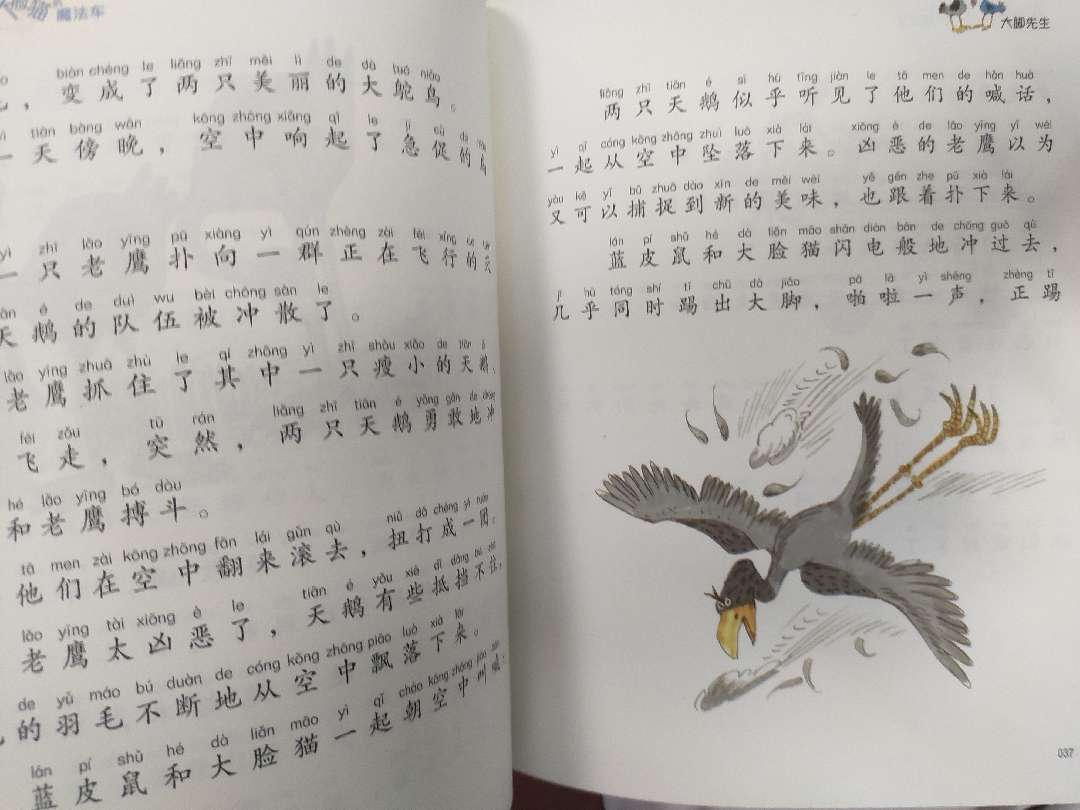 脸猫 魔法车
biàn chéng le liǎng zhī měi lì de dà tuó niǎo
，变成了两只美丽的大鸵鸟。
tiān bàng wǎn kōng zhōng xiǎng qǐ le jí cù de
一天傍晚，空中响起了急促的
yì zhī lǎo yīng pū xiàng yì qún zhèng zài fēi xíng
一只老鹰扑向一群正在飞行的
é de duì wu bèi chōng sàn le
天鹅的队伍被冲散了。
lǎo yīng zhuā zhù le qí zhōng yì zhī shòu xiǎo de tiān é
老鹰抓住了其中一只瘦小的天鹅，
fēi zǒu tū rán liǎng zhī tiān é yǒng gǎn de chōng
飞走，突然，两只天鹅勇敢地冲
hé lǎo yīng bó dòu
和老鹰搏斗。
tā men zài kōng zhōng fān lái gǔn qù niǔ dǎ chéng yì tuán
他们在空中翻来滚去，扭打成一团。
lǎo yīng tài xiōng è le tiān é yǒu xiē dǐ dǎng bú zhù
老鹰太凶恶了，天鹅有些抵挡不住，
de yǔ máo bú duàn de cóng kōng zhōng piāo luò xià lái
的羽毛不断地从空中飘落下来。
lán pí shǔ hé dà liǎn māo yì qǐ cháo kōng zhōng
蓝皮鼠和大脸猫一起朝空中
大脚先生
liǎng zhī tiān é sì hū tīng jiàn le tā men de hǎn huà
两只天鹅似乎听见了他们的喊话，
yì qǐ cóng kōng zhōng zhuì luò xià lái xiōng è de lǎo yīng yǐ wéi
一起从空中坠落下来。凶恶的老鹰以为
yòu kě yǐ bǔ zhuō dào xīn de měi wèi yě gēn zhe pū xià lái
又可以捕捉到新的美味，也跟着扑下来。
lán pí shǔ hé dà liǎn māo shǎn diàn bān de chōng guò qù
蓝皮鼠和大脸猫闪电般地冲过去，
jī hū tóng shí tī chū dà jiǎo pā lā yì shēng zhèng tī
几乎同时踢出大脚，啪啦一声，正踢
037